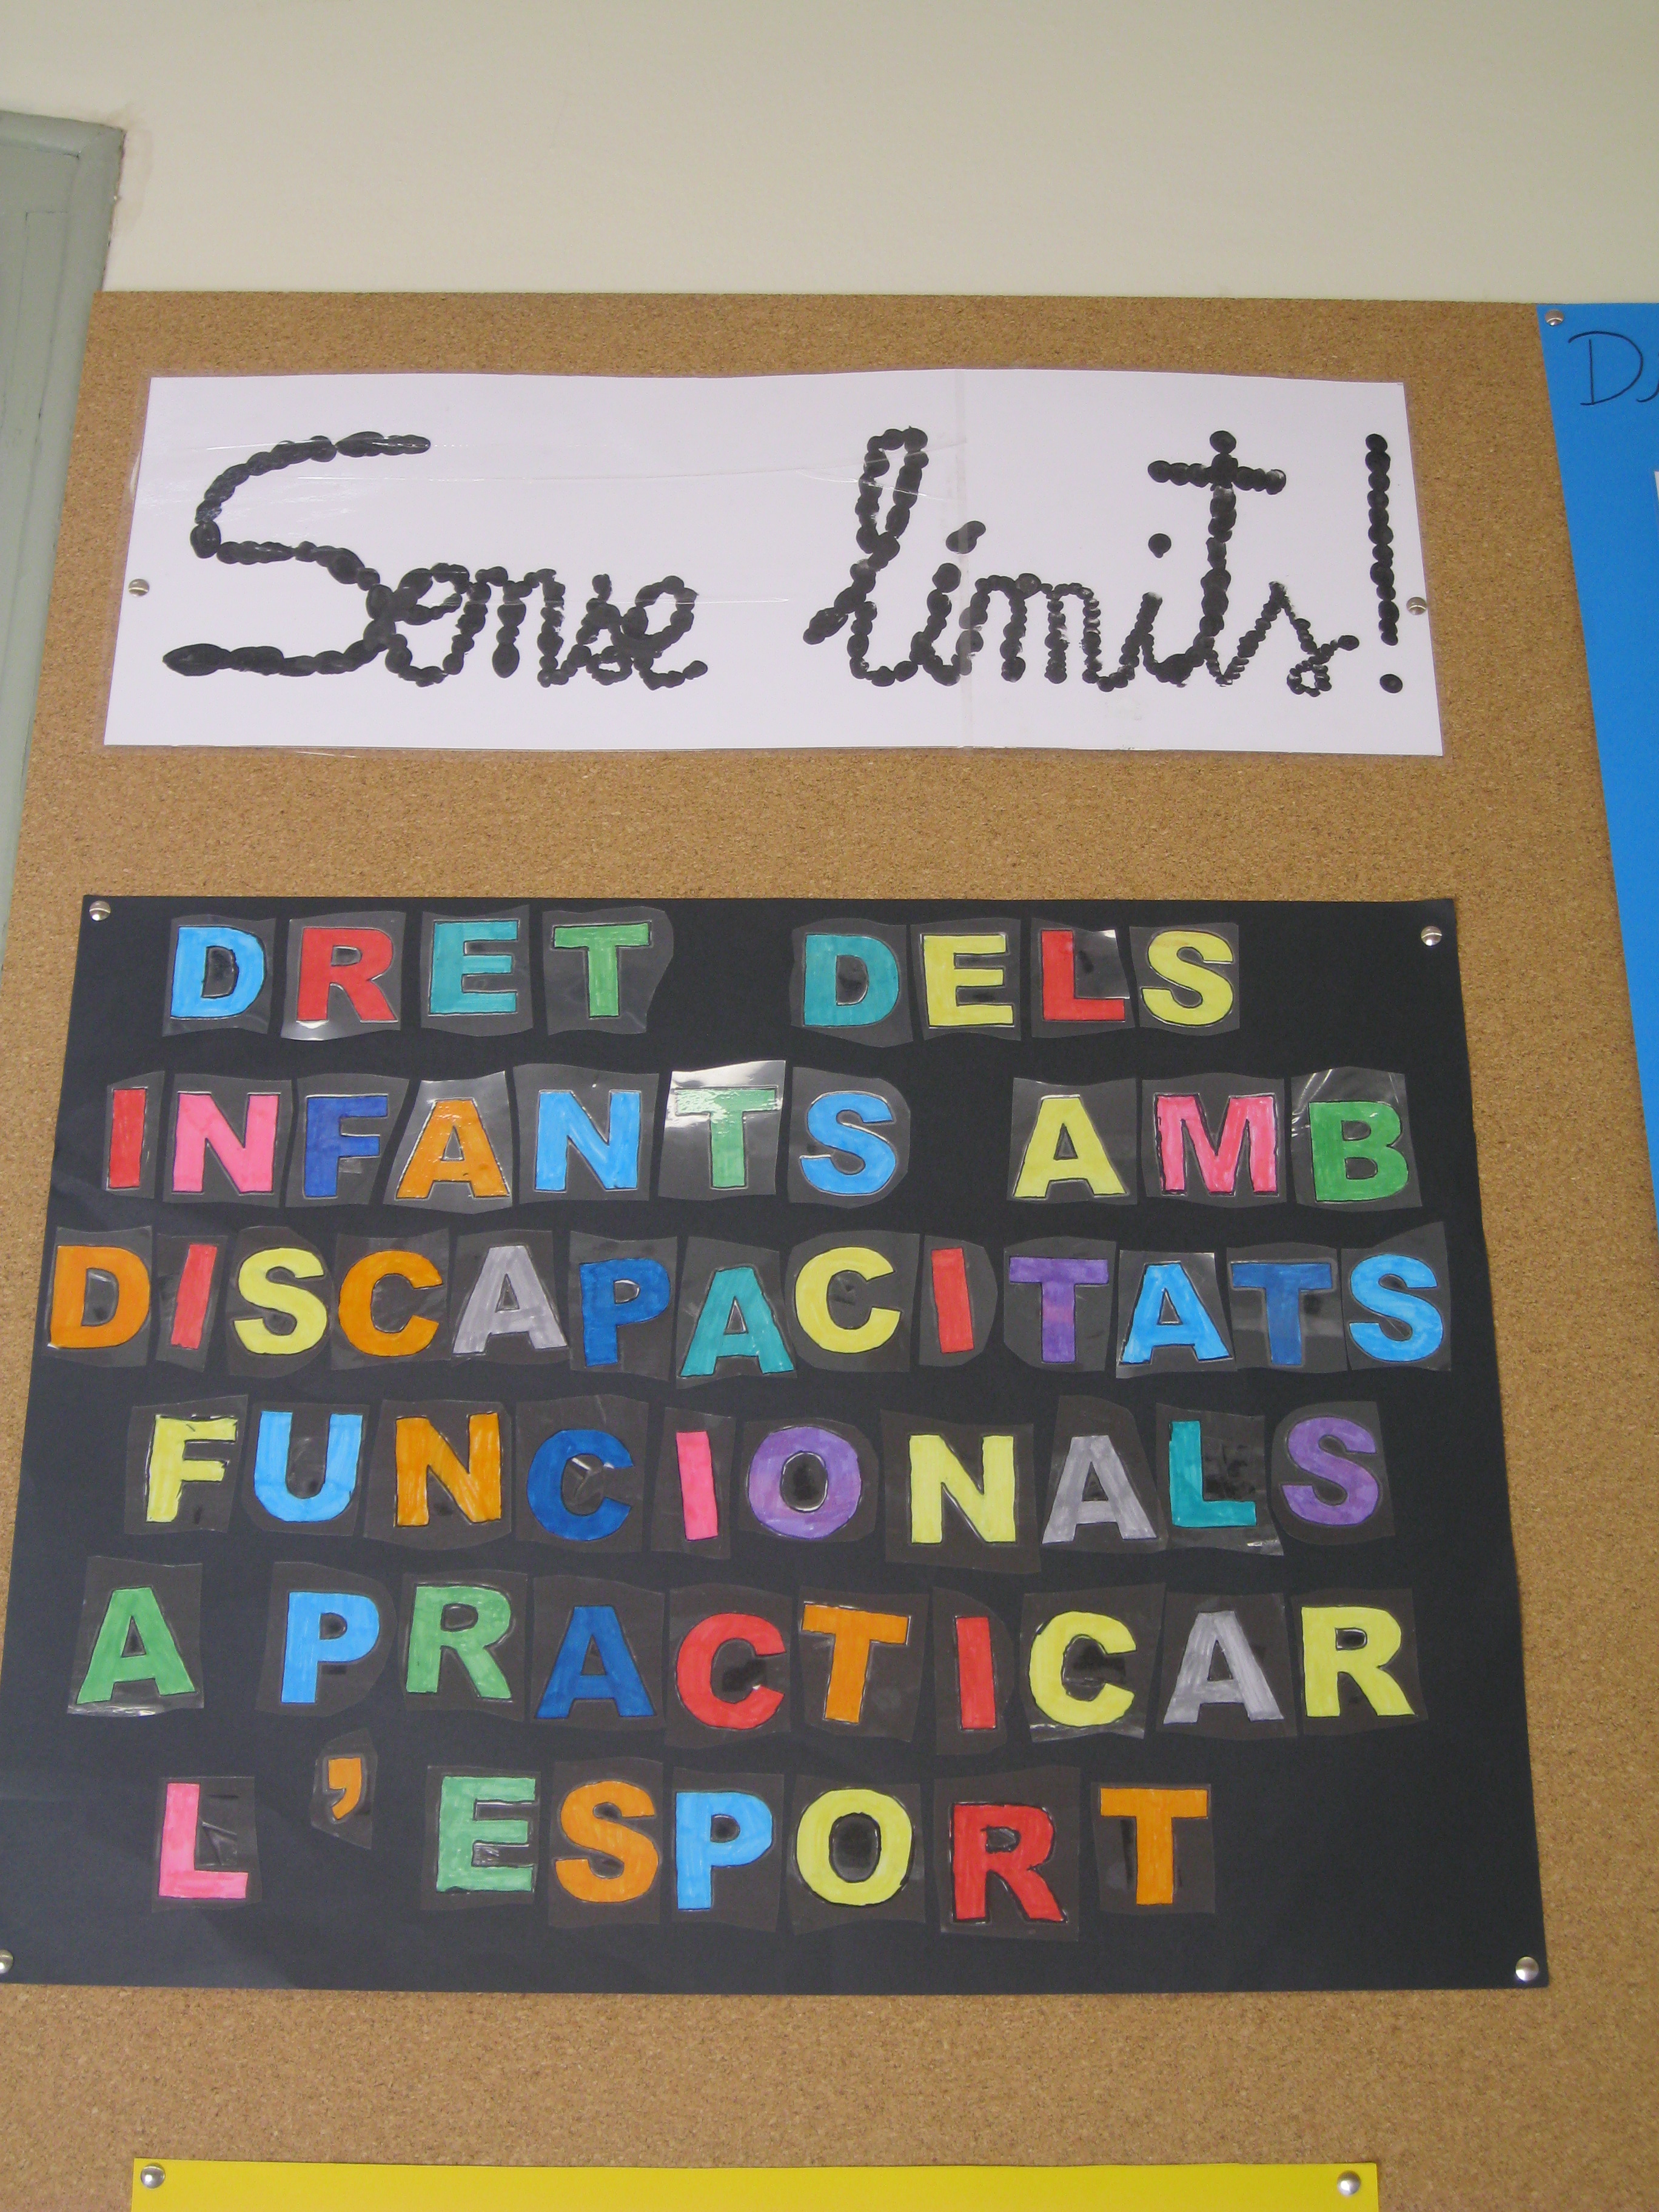 Sense límits!
DRET DELS
INFANTS AMB
DISCAPACITATS
FUNCIONALS
A PRACTICAR
L'ESPORT